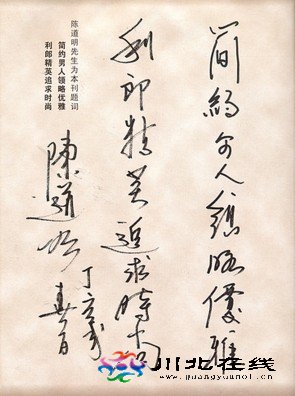 簡約男人領略優雅
利郎精英追求時尚
陈道明先生为本刊题词
简约男人领略优雅
利郎精英追求时尚
陳道明
丁亥
川北在线
www.guangyuanol.cn